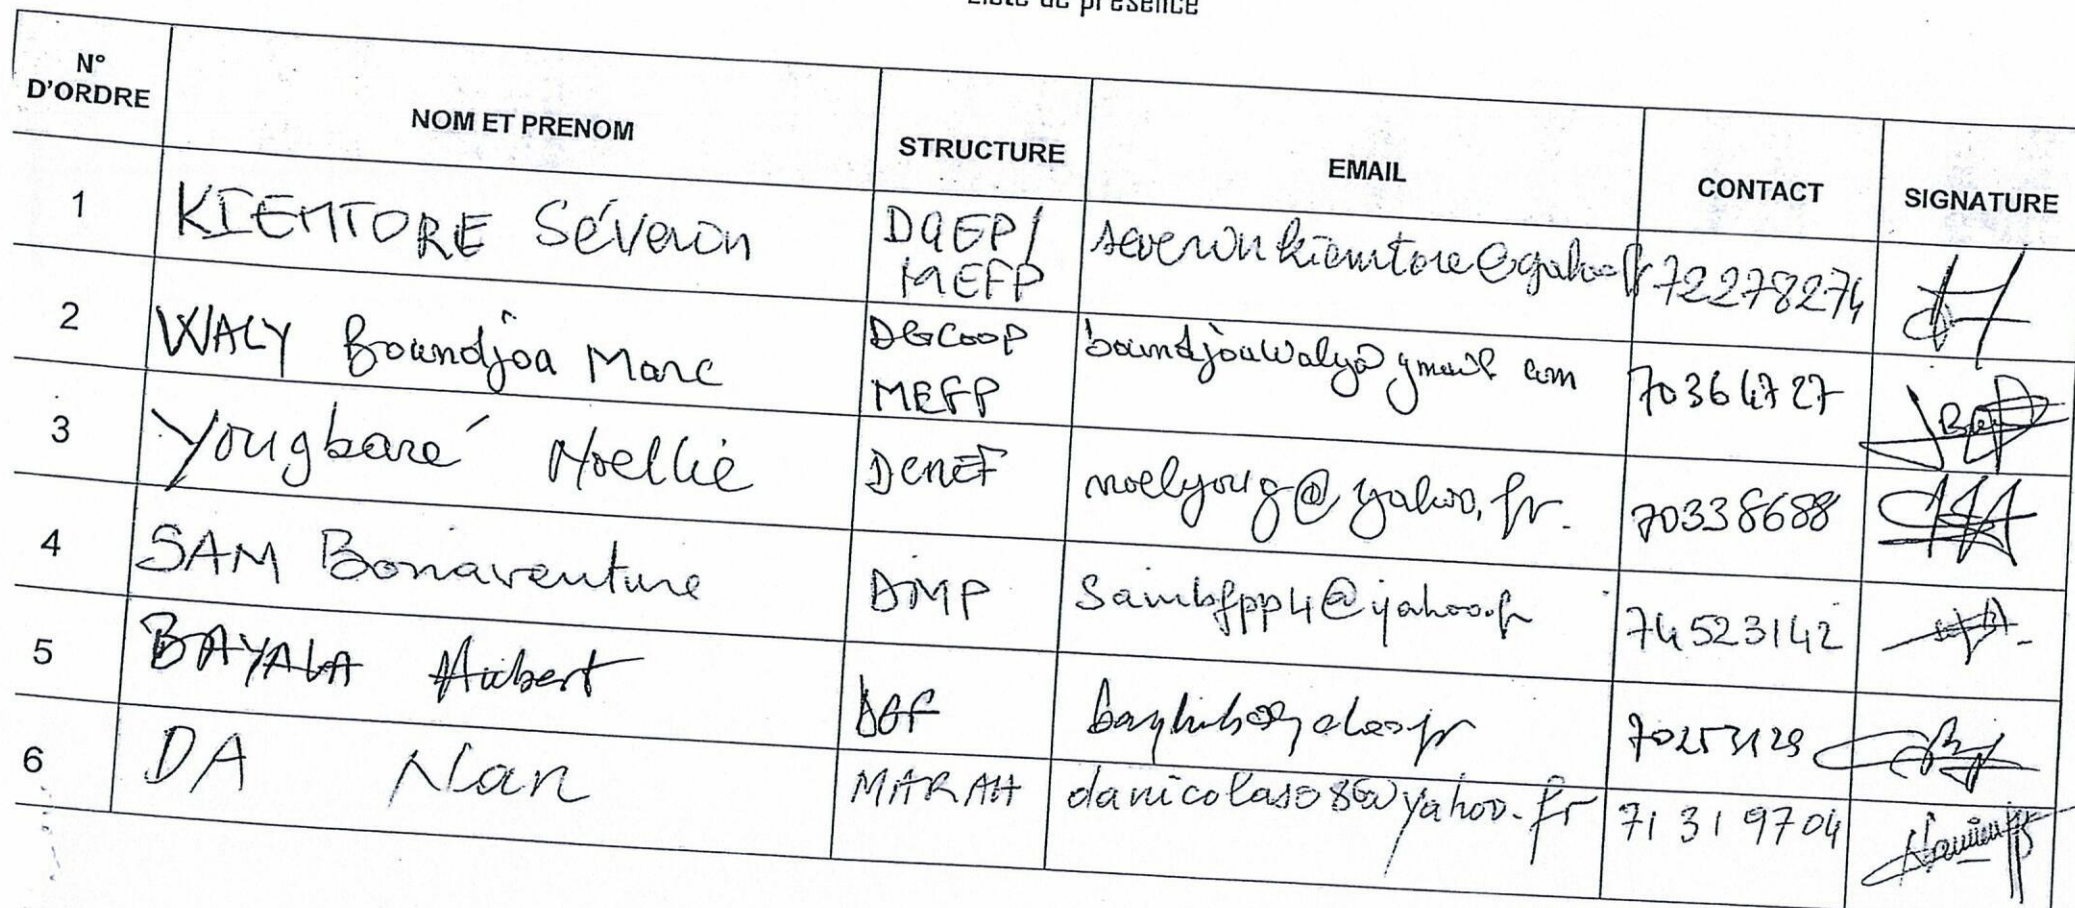 Liste de présence
N° D'ORDRE NOM ET PRENOM STRUCTURE EMAIL CONTACT SIGNATURE
1 KIEMTORE Séverin DGEP/ MEFP severinkiemtore@yahoo.fr 72278274
2 WALY Boundjoa Marc DGCOOP MEFP boundjouwaly@gmail com 70364727
3 Yougbaré Noellie DCMEF noelyoug@yahoo.fr. 70338688
4 SAM Bonaventure DMP Sambfpp4@yahoo.fr 74523142
5 BAYALA Hubert DAF 70253129
6 DA Nan MARAH danicolas08@yahoo.fr 71319704